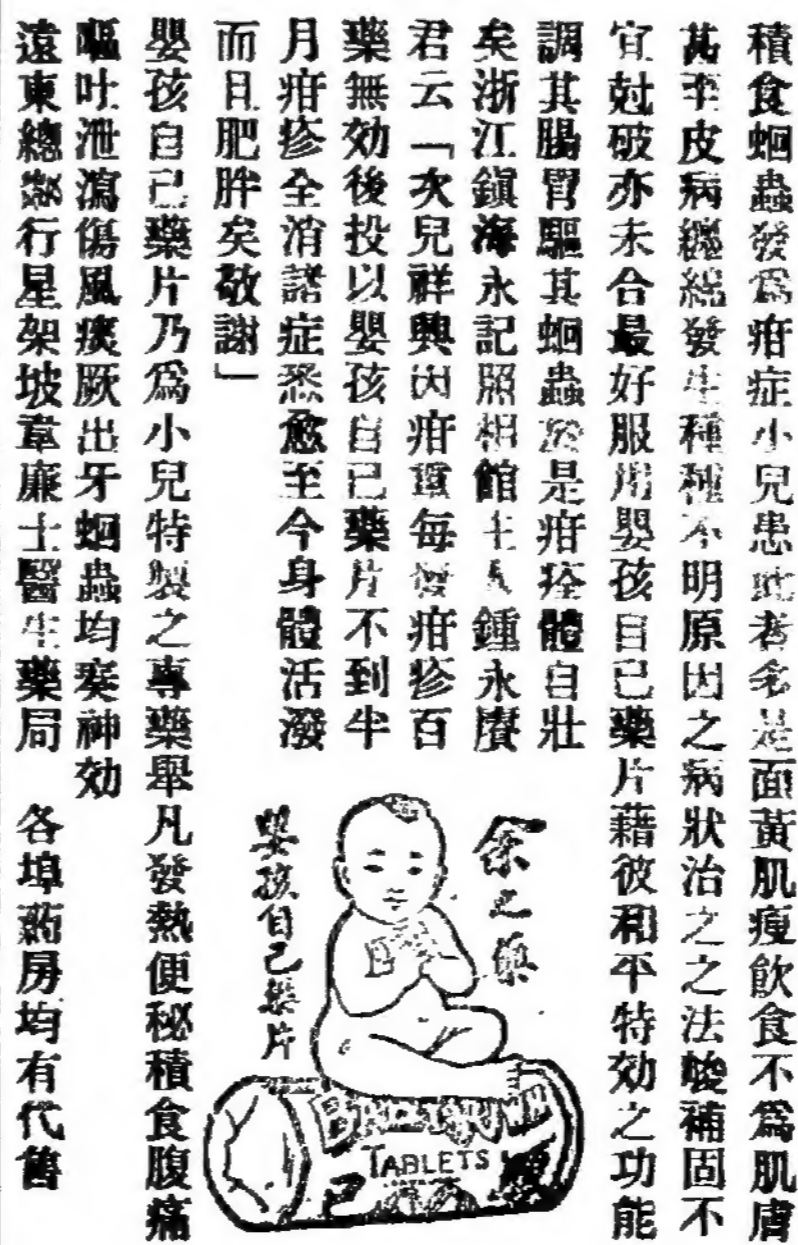 積食蛔蟲發爲疳症小兒患此者多是面黃肌瘦飲食不爲肌膚
甚乎皮病纏綿發生種種不明原因之病狀治之之法峻補固不
宜尅破亦未合最好服用嬰孩自己藥片藉彼和平特効之功能
調其腸胃驅其蛔蟲於是疳痊體自壯
矣浙江鎮海永記照相館主人鍾永賡
君云「次兒祥興因疳重每發疳疹百
藥無効後投以嬰孩自己藥片不到半
月疳疹全消諸症悉愈至今身體活潑
而且肥胖矣敬謝」
余之
嬰孩自己藥片
BABY'S OWN
TABLETS
嬰孩自己藥片乃爲小兒特製之專藥舉凡發熱便秘積食腹痛
嘔吐泄瀉傷風痰厥出牙蛔蟲均奏神効
遠東總發行星架坡韋廉士醫生藥局 各埠藥房均有代售